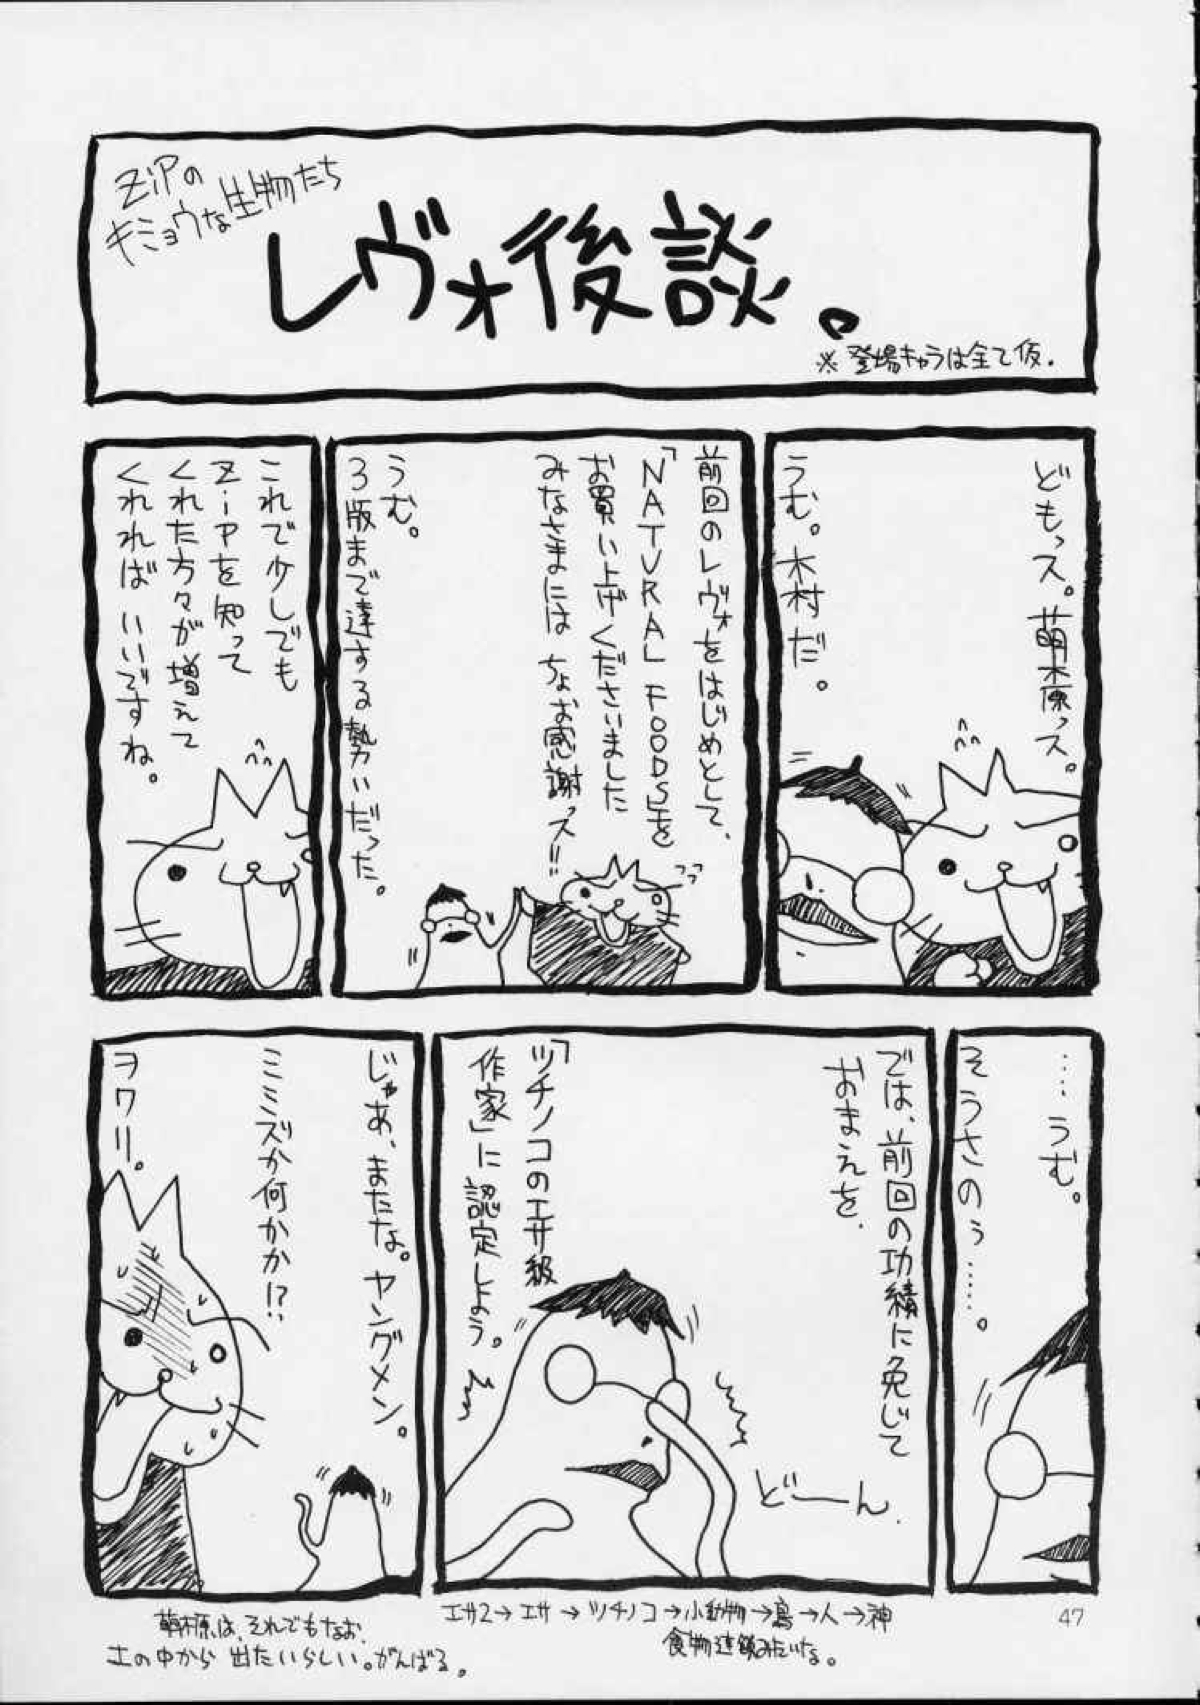 ZiPの
キミョウな生物たち
レヴォ後談。
※登場キャラは全て仮.
どもっス。萌木原っス。
うむ。木村だ。
前回のレヴォをはじめとして、
「NATURAL FOODS」を
お買い上げくださいました
みなさまには ちょお感謝っス!!
うむ。
3版まで達する勢いだった。
これで少しでも
ZiPを知って
くれた方々が増えて
くれればいいですね。
……うむ。
そうさのぅ……。
では、前回の功績に免じて
おまえを、
「ツチノコのエサ級
作家」に認定しよう。
どーん.
じゃあ、またな。ヤングメン。
ミミズか何かか!?
ヲワリ。
エサ2→エサ→ツチノコ→小動物→鳥→人→神
食物連鎖みたいな。
萌木原は、それでもなお、
土の中から出たいらしい。がんばる。
47